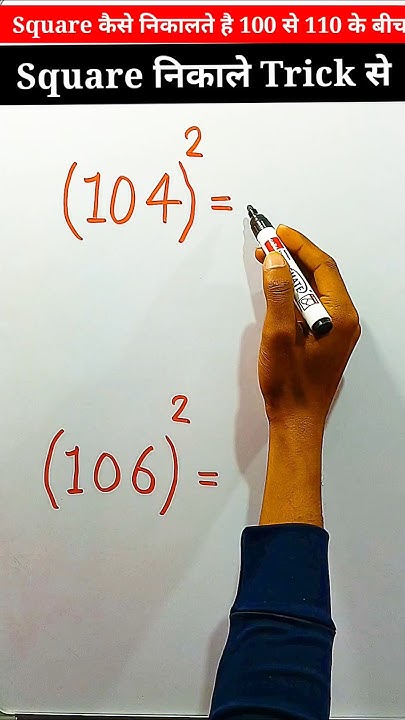 Square कैसे निकालते है 100 से 110 के बीच
Square निकाले Trick से
(104)² =
(106)² =